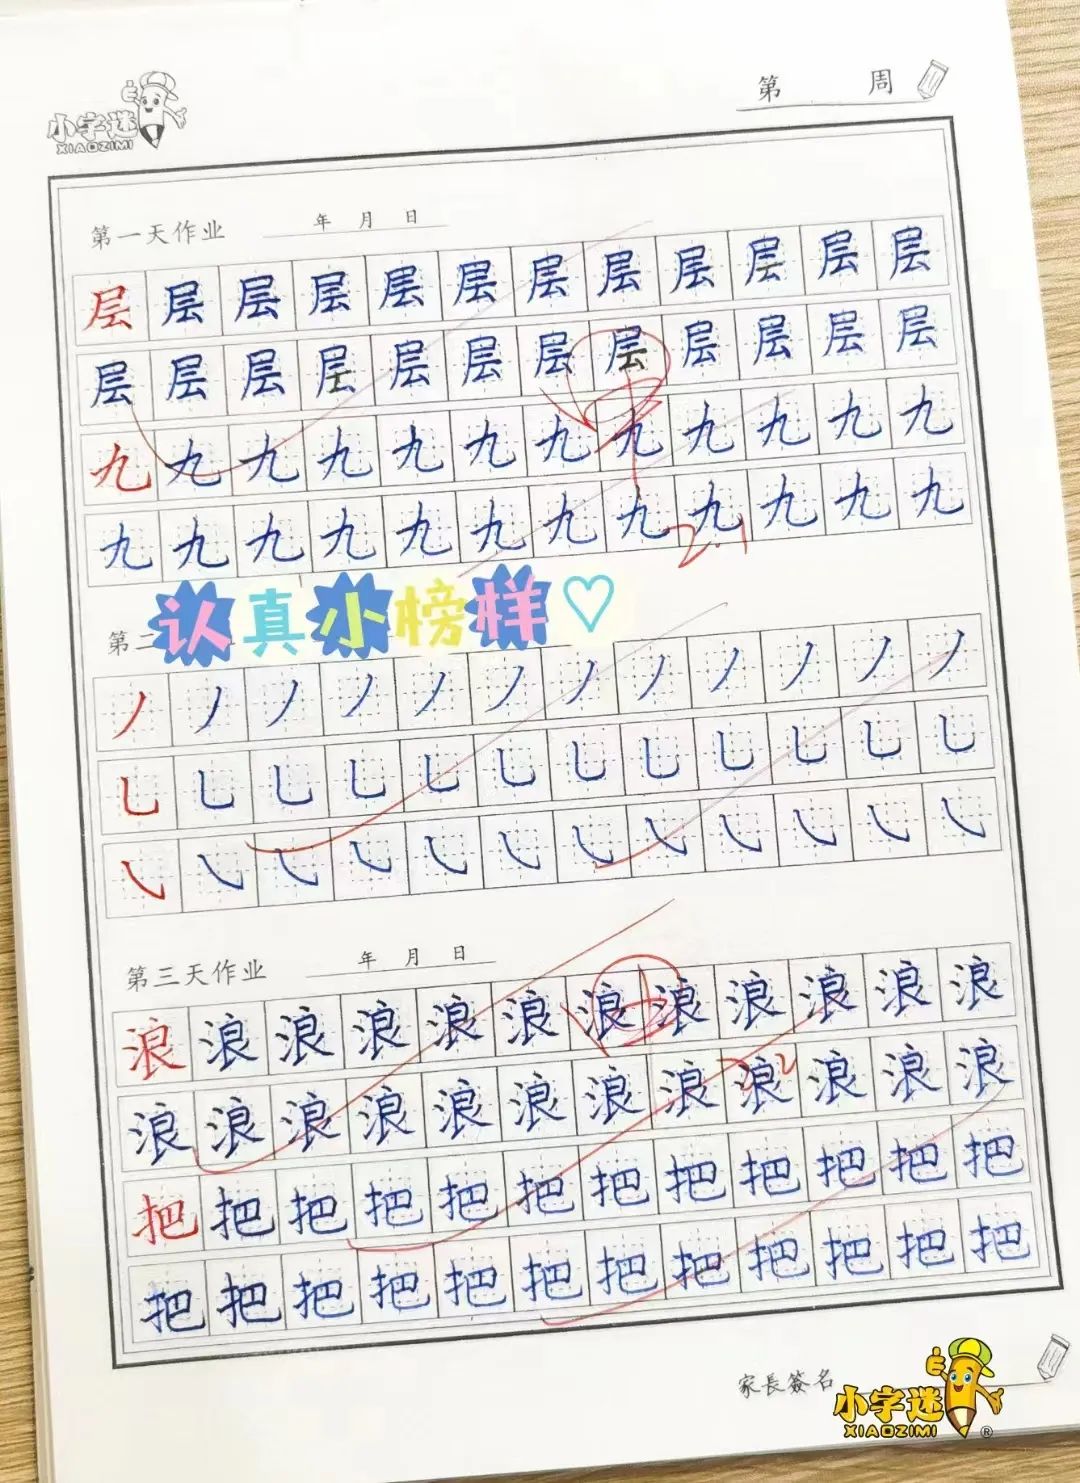 第 周
小字迷
XIAOZIMI
第一天作业 年 月 日
层 层 层 层 层 层 层 层 层 层 层 层
层 层 层 层 层 层 层 层 层 层 层 层
九 九 九 九 九 九 九 九 九 九 九 九
九 九 九 九 九 九 九 九 九 九 九 九
2.1
认真小榜样♡
第二
丿 丿 丿 丿 丿 丿 丿 丿 丿 丿 丿 丿
乚 乚 乚 乚 乚 乚 乚 乚 乚 乚 乚 乚
㇏ ㇏ ㇏ ㇏ ㇏ ㇏ ㇏ ㇏ ㇏ ㇏ ㇏ ㇏
第三天作业 年 月 日
浪 浪 浪 浪 浪 浪 浪 浪 浪 浪 浪 浪
浪 浪 浪 浪 浪 浪 浪 浪 浪 浪 浪 浪
把 把 把 把 把 把 把 把 把 把 把 把
把 把 把 把 把 把 把 把 把 把 把 把
家長簽名
小字迷
XIAOZIMI®